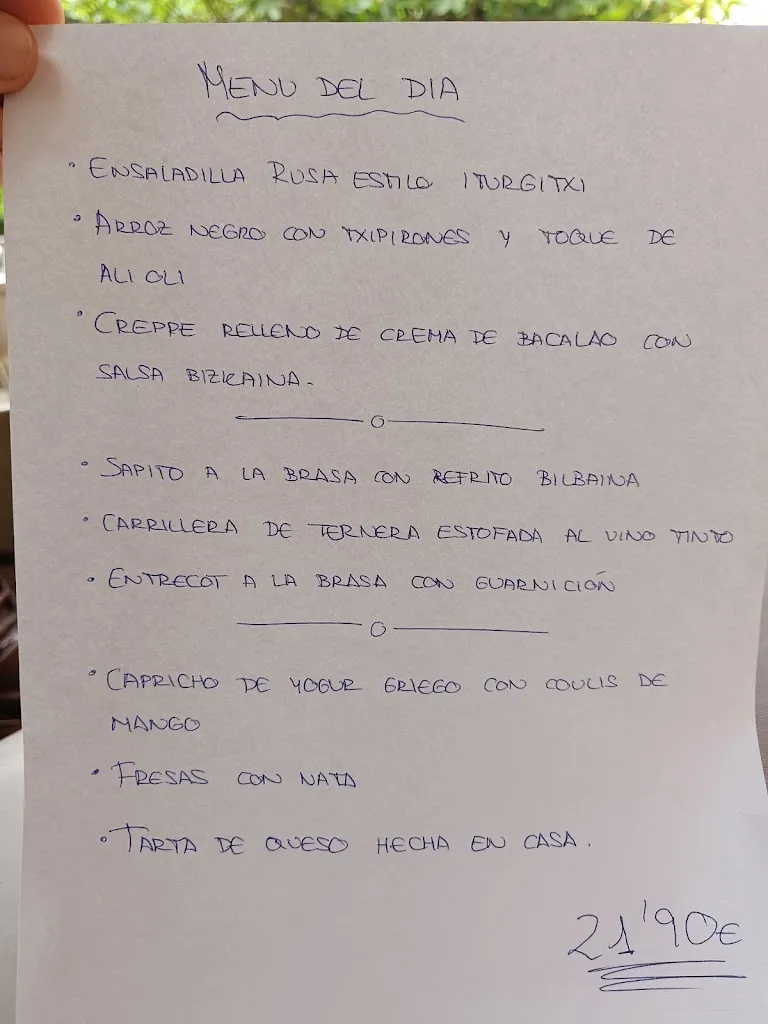 MENU DEL DIA
• ENSALADILLA RUSA ESTILO ITURGITXI
• ARROZ NEGRO CON TXIPIRONES Y TOQUE DE
ALI OLI
• CREPPE RELLENO DE CREMA DE BACALAO CON
SALSA BIZKAINA.
• SAPITO A LA BRASA CON REFRITO BILBAINA
• CARRILLERA DE TERNERA ESTOFADA AL VINO TINTO
• ENTRECOT A LA BRASA CON GUARNICIÓN
• CAPRICHO DE YOGUR GRIEGO CON COULIS DE
MANGO
• FRESAS CON NATA
• TARTA DE QUESO HECHA EN CASA.
21'90€